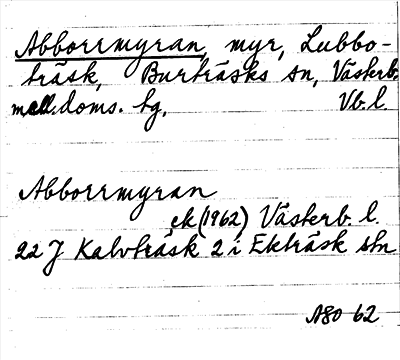 Abborrmyran, myr, Lubbo-
träsk, Burträsks sn, Västerb.
mell. doms. tg, Vb. l.
Abborrmyran
ek (1962) Västerb. l.
22 J Kalvträsk 2 i Ekträsk stn
ASO 62